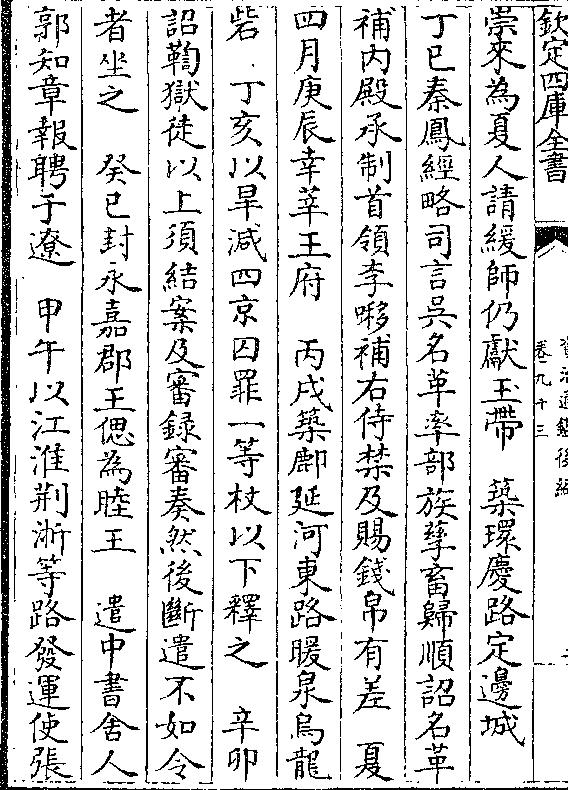 欽定四庫全書
資治通鑑後編
卷九十三
崇來為夏人請緩師仍獻玉帶　築環慶路定邊城
丁巳秦鳳經略司言吳名革率部族孳畜歸順詔名革
補内殿承制首領李㖼補右侍禁及賜錢帛有差　夏
四月庚辰幸莘王府　丙戌築鄜延河東路暖泉烏龍
砦　丁亥以旱減四京囚罪一等杖以下釋之　辛卯
詔鞫獄徒以上須結案及審録審奏然後斷遣不如令
者坐之　癸巳封永嘉郡王偲為睦王　遣中書舍人
郭知章報聘于遼　甲午以江淮荆浙等路發運使張